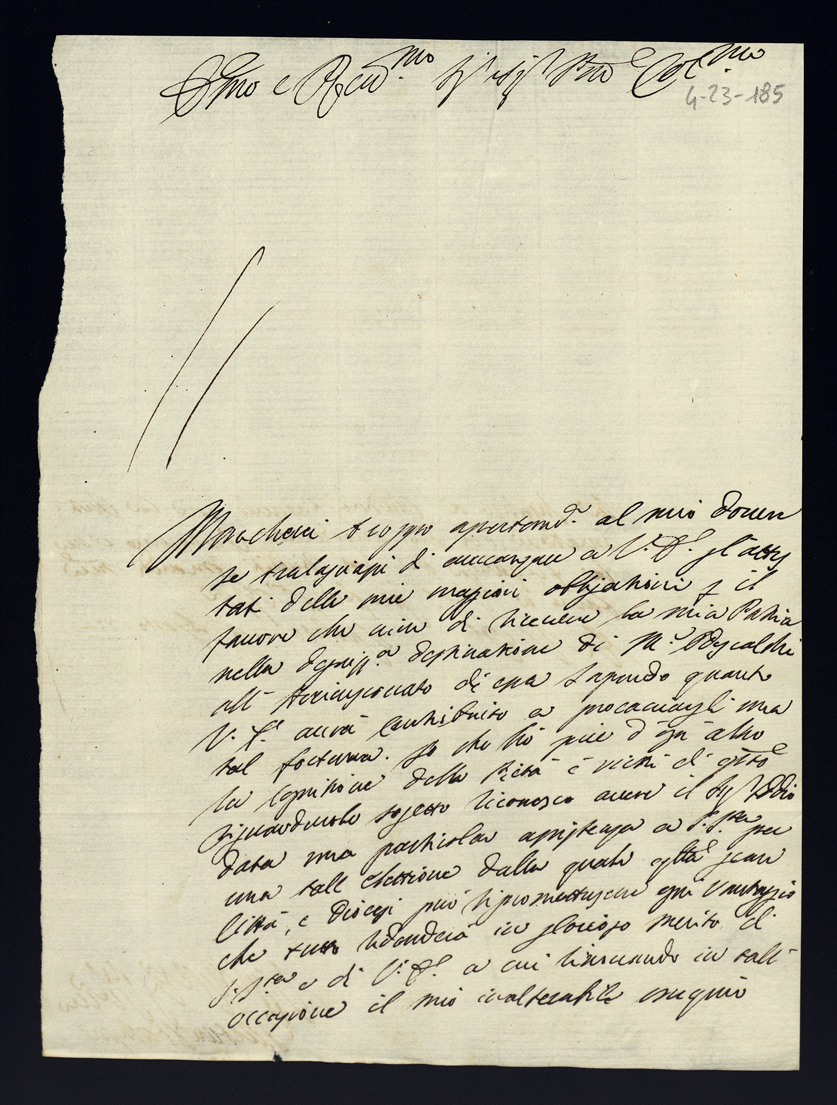 Emo e Re͞v.mo Sig.r Sig.r P͞ron͞e Col.mo
4-23-185
Mancherei troppo apertam.e al mio dover
se tralasciassi di avvanzare a V. E. gl'attes
tati delle mie maggiori obbligazioni p il
favore che viene di ricevere la mia Patria
nella degniss.a destinazione di M.r
all' Arcivescovato di essa sapendo quanto
V. E. avrà contribuito a procacciargli una
tal fortuna. Io che hò più d'ogn'altro
la cognizione della Pietà e virtù di q͞sto
riguardevole sogetto riconosco avere il Sig. Iddio
data una particolar assistenza a S. S.tà per
una tall' elettione dalla quale q͞lla gran
Città, e Diocesi può ripromettersene ogni vantaggio
che tutto ridonderà in glorioso merito di
S. S.tà e di V. E. a cui rinovando in tall'
occasione il mio inalterabile ossequio